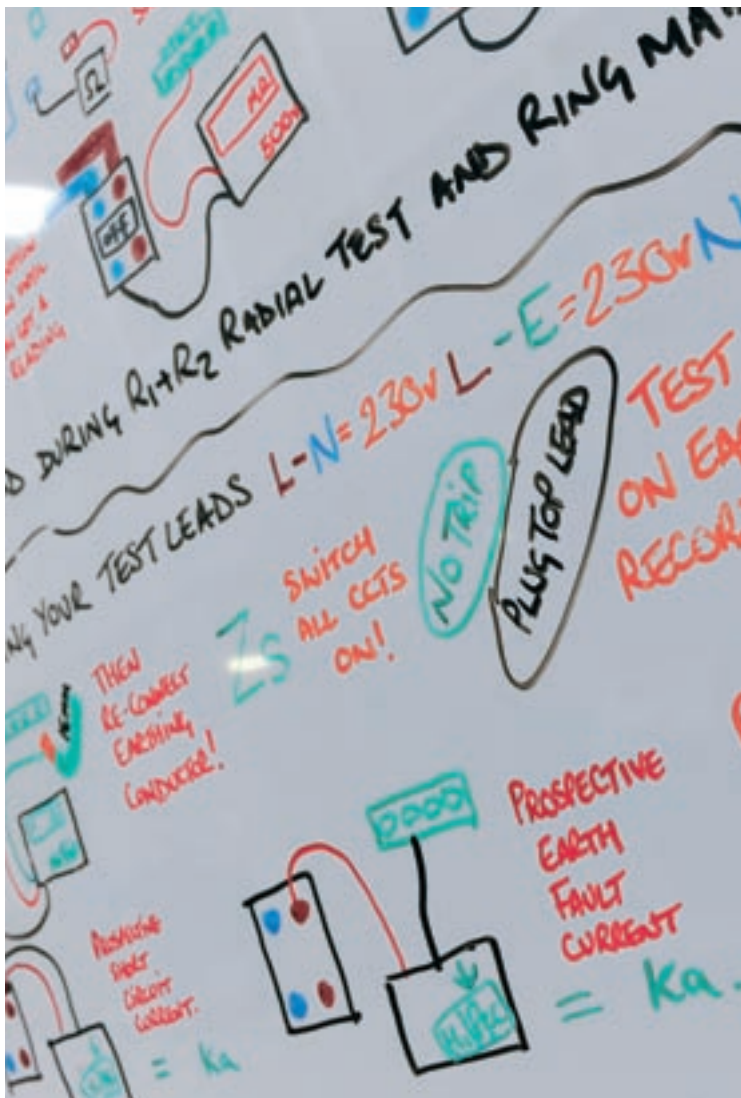 Ω
MΩ
500v
OFF
READING
DURING R1+R2 RADIAL TEST AND RING MA
YOUR TEST LEADS L-N=230v L-E=230v N
THEN
RE-CONNECT
EARTHING
CONDUCTOR!
Zs
SWITCH
ALL CCTS
ON!
NO TRIP
PLUG TOP LEAD
TEST
ON EA
RECOR
PROSPECTIVE
SHORT
CIRCUIT
CURRENT.
= Ka
PROSPECTIVE
EARTH
FAULT
CURRENT
= Ka.